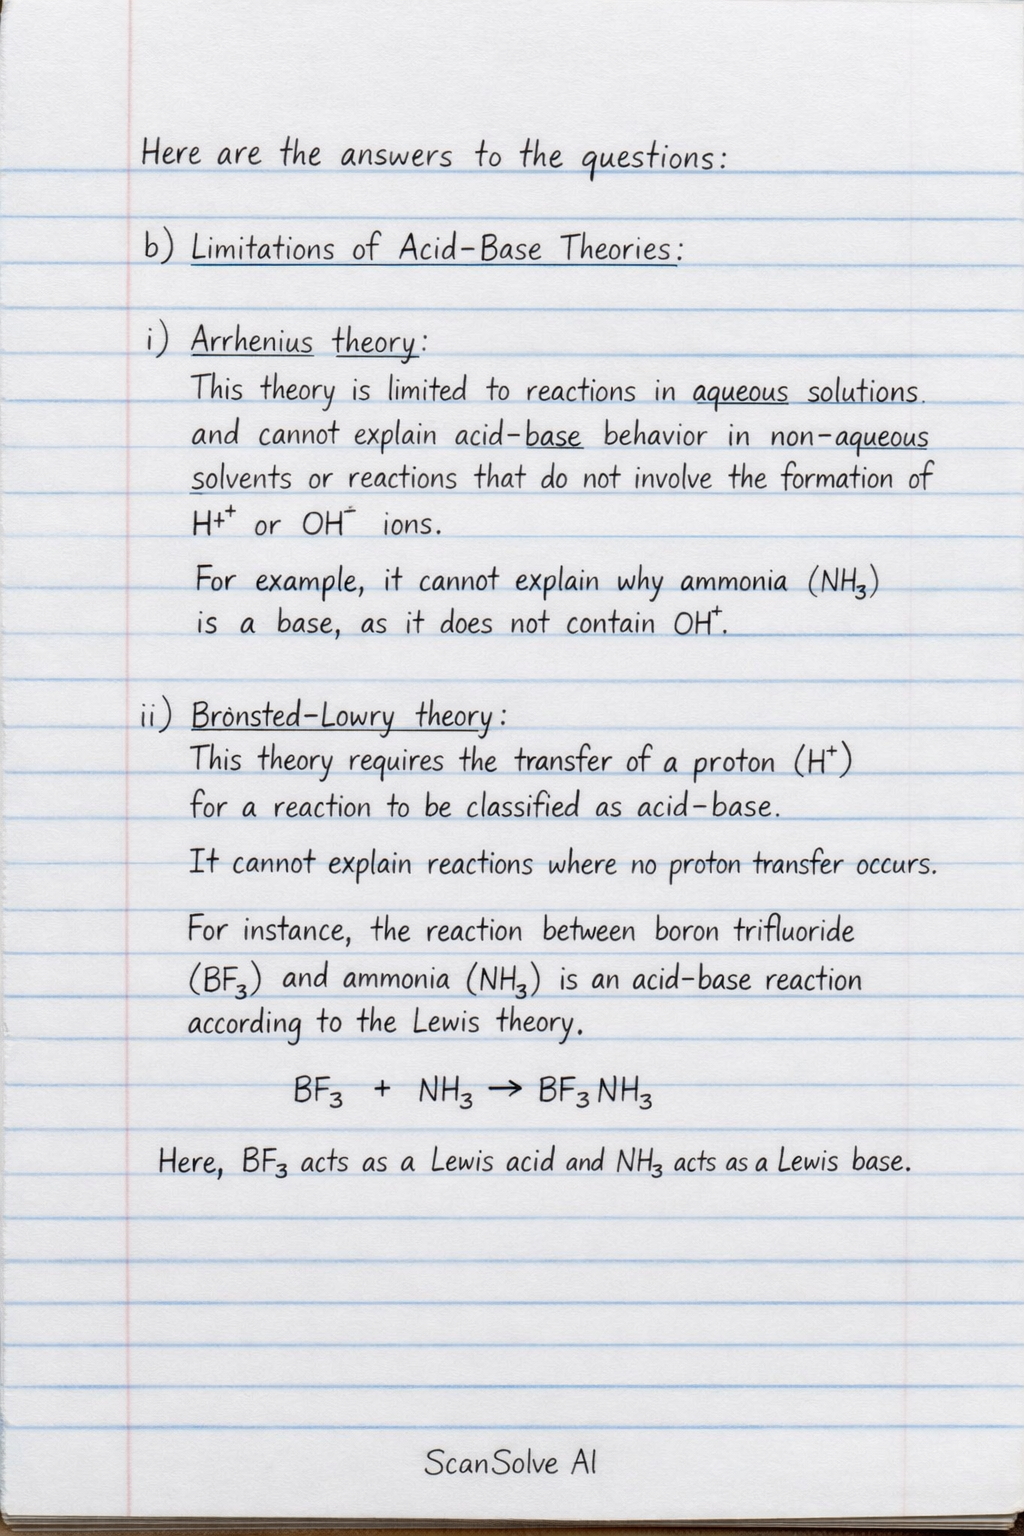 Here are the answers to the questions:
b) Limitations of Acid-Base Theories:
i) Arrhenius theory:
This theory is limited to reactions in aqueous solutions.
and cannot explain acid-base behavior in non-aqueous
solvents or reactions that do not involve the formation of
H+⁺ or OH⁻ ions.
For example, it cannot explain why ammonia (NH₃)
is a base, as it does not contain OH⁺.
ii) Brònsted-Lowry theory:
This theory requires the transfer of a proton (H⁺)
for a reaction to be classified as acid-base.
It cannot explain reactions where no proton transfer occurs.
For instance, the reaction between boron trifluoride
(BF₃) and ammonia (NH₃) is an acid-base reaction
according to the Lewis theory.
BF₃ + NH₃ → BF₃ NH₃
Here, BF₃ acts as a Lewis acid and NH₃ acts as a Lewis base.
ScanSolve AI